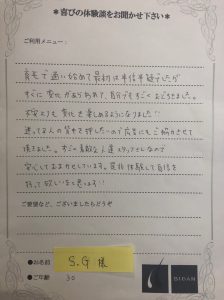 ＊喜びの体験談をお聞かせ下さい＊
ご利用メニュー：
育毛で通い始めて最初は半信半疑でしたが
すぐに変化があらわれて、自分でもすごくおどろきました。
不安よりも変化を楽しめるようになりました!!
迷ってる人の背中を押したいので広告にもご協力させて
頂きました。すごく素敵な人達、スタッフさんなので
安心しておまかせしています。是非体験して自信を
持って欲しいなと思います!!
ご要望など、ございましたらどうぞ
●お名前 S.G 様
●ご年齢 30
BIDAN